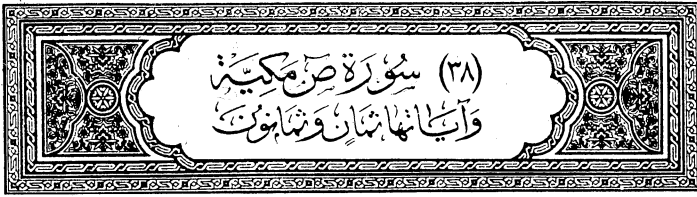 (٣٨) سُورَة صٓ مَكيَّة
وَآيَاتهَا ثمَانٍ وَثمَانوُن